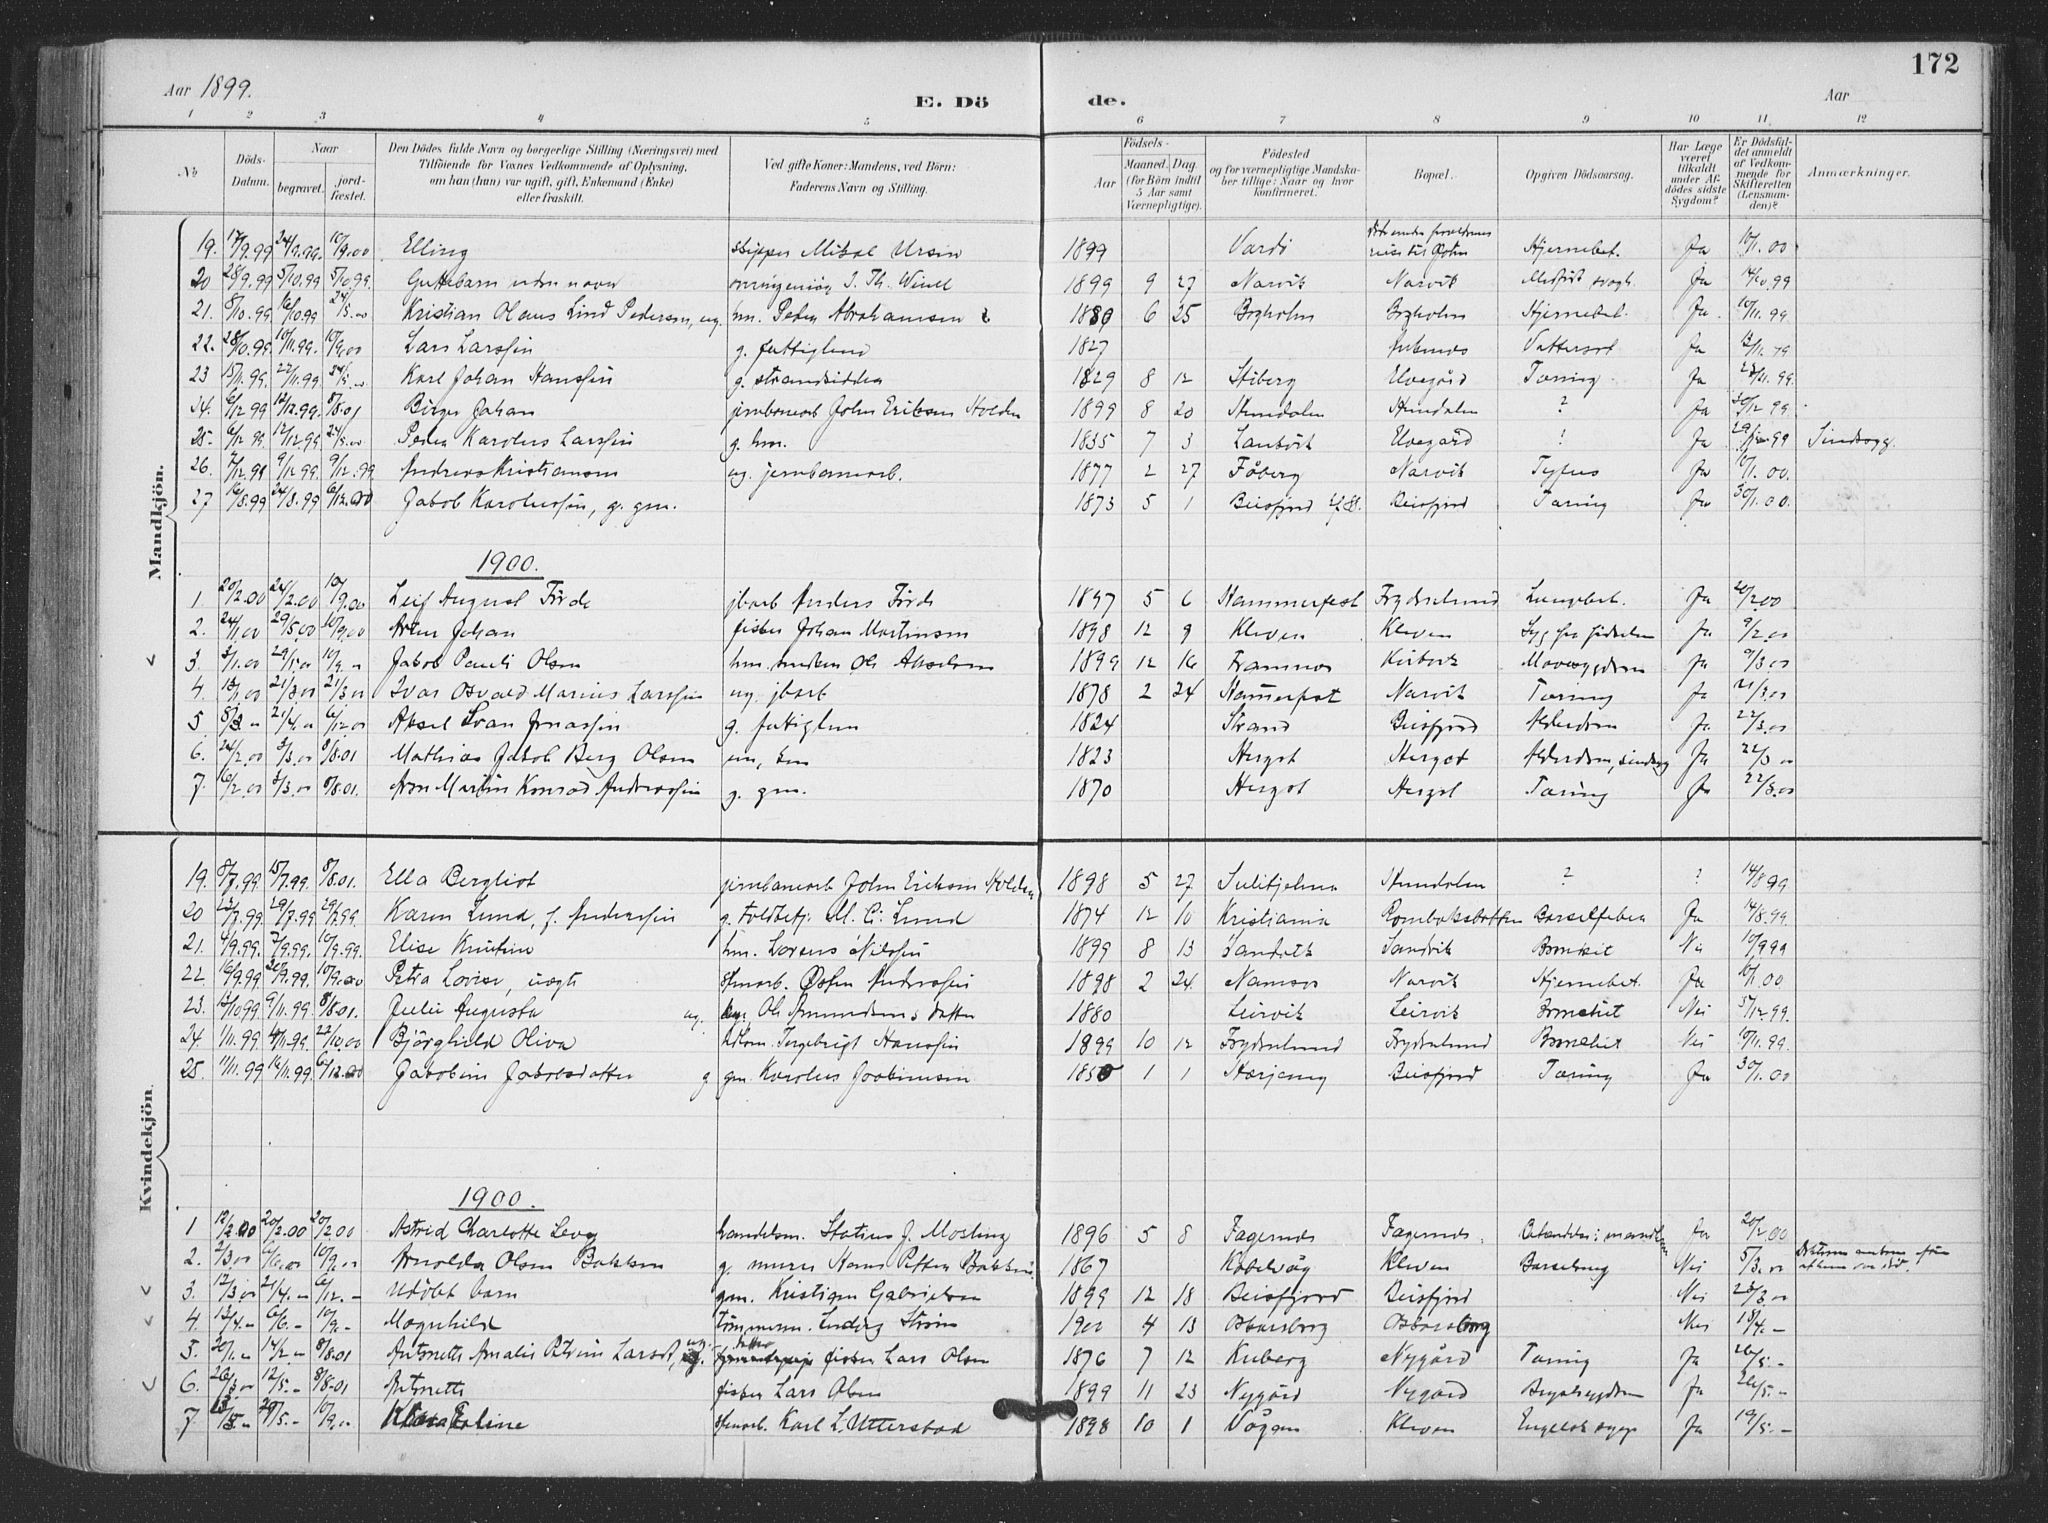 172
Aar 1899.
E. Dö de.
Aar
1 2 3 4 5 6 7 8 9 10 11 12
No
Döds-Datum.
Naar
begravet.
jord-fæstet.
Den Dödes fulde Navn og borgerlige Stilling (Næringsvei) med
Tilföiende for Voxnes Vedkommende af Oplysning,
om han (hun) var ugift, gift, Enkemand (Enke)
eller fraskilt.
Ved gifte Koner: Mandens, ved Börn:
Faderens Navn og Stilling.
Födsels-
Aar
Maaned. Dag.
(for Börn indtil
5 Aar samt
Værnepligtige).
Födested
og for værnepligtige Mandska-
ber tillige: Naar og hvor
konfirmeret.
Bopæl.
Opgiven Dödsaarsag.
Har Læge
været
tilkaldt
under Af-
dödes sidste
Sygdom?
Er Dödsfal-
det anmeldt
af Vedkom-
mende for
Skifteretten
(Lensman-
den)?
Anmærkninger.
Mandkjön.
19. 17/9.99 24/9.99. 10/9.00 Elling skipper Mikal Ursin 1899 Vardö Hjernebet. Ja 10/1.00
20 28/9.99 5/10.99 5/10.99. Guttebarn uden navn 1899 9 27 Narvik Narvik Ja 14/10.99
21. 8/10.99 16/10.99 24/5.00 Kristian Olaus Lind Pedersen, ug. hm. Peder Abrahamsen 1880 6 25 Bogholm Bogholm Hjernebet. Ja. 10/11.99
22. 28/10.99. 10/11.99. 10/9.00 Lars Larssen g. fattiglem 1827 Vattersot Ja
23 15/11.99. 22/11.99 Karl Johan Hanssen g. strandsidder 1829 8 12 Stiberg Elvegård Tæring Ja 28/11.99.
24. 6/12 99 12/12.99. 8/8.01 Birger Johan jernbanearb John Eriksen Holden 1899 8 20 Hundalen Hundalen ? Ja 30/12 99.
25. 6/12 99 12/12.99 24/5.00 Peder Karolius Larssen g. hm. 1835 7 3 Elvegård ? Ja 29/12.99 Sindssyg.
26. 7/12.99 9/12.99. 9/12.99 Andreas Kristiansen ug. jernbanearb. 1877 2 27 Fåberg Narvik Tyfus Ja 10/1.00.
27 16/8.99 24/8.99 6/12.00 Jakob Karoliussen, g. gm. 1873 5 1 Beisfjord Beisfjord Tæring Ja 30/1.00.
1900.
1. 20/2.00 24/2.00 10/9.00 Leif August Förde jbarb Anders Förde 1897 5 6 Hammerfest Frydenlund Lungebet. Ja 20/2.00
2. 24/1.00 29/5.00 10/9.00 Arne Johan fisker Johan Martinsen 1898 12 9 Kleven Kleven Syg fra födselen Ja 9/2.00
3. 3/1.00 29/5.00 10/9. - Jakob Pauli Olsen 1899 12 16 Framnes Mavesygdom Ja 9/3.00
4. 21/3.00 21/3.00 Ivar Osvald Marius Larssen ug. jbarb 1878 2 24 Hammerfest Narvik Tæring Ja 21/3.00
5. 8/3 - 21/4. - 6/12.00 Aksel Svan Jonassen g. fattiglem 1824 Strand Beisfjord Alderdom Ja. 22/3.00
6. 24/2.00 3/3.00 8/8.01 Mathias Jakob Berg Olsen em, hm 1823 Hergot Hergot Alderdom, sindssyg Ja 22/3 00
7. 16/2.00 3/3.00 8/8.01. Aron Martin Konrad Anderssen g. gm. 1870 Hergot Hergot Tæring Ja 22/3.00
Kvindekjön
19. 8/7.99. 15/7.99. 8/8.01. Ella Bergliot jernbanearb John Eriksen Holden 1898 5 27 Sulitjelma Hundalen ? ? 14/8 99
20 23/7.99. 29/7.99 29/7.99. Karen Lund, f. Anderssen g. Toldbetj. M. C. Lund 1874 12 10 Kristiania Rombaksbotten Barselfeber Ja 14/8.99.
21. 4/9.99. 7/9.99. 10/9.99. Elise Kristine hm. Lorens Nilssen 1899 8 13 Sandvik Sandvik Bronkit Nei 10/9 99
22 16/9.99 20/9.99. 10/9.00 Petra Lovise, uægte stenarb. Östen Anderssen 1898 2 24 Namsos Narvik Hjernebet. Ja 10/1.00
23. 12/10.99 9/11.99. 8/8.01. Julie Augusta ug. Ole Amundsens datter 1880 Leirvik Leirvik Bronchit Nei 31/12.99.
24. 1/11.99 4/11.99. 22/10.00 Bjørghild Oliva Ingebrigt Hanssen 1899 10 12 Frydenlund Frydenlund Bronchit Nei 10/11.99.
25. 11/11.99 16/11.99. 6/12.00 Jakobine Jakobsdatter g gm. Karolus Joakimsen 1850 1 1 Beisfjord Tæring Ja 30/1.00
1900.
1 12/2.00 20/2.00 20/2.00 Astrid Charlotte Levy handelsm. Statius J. Mosling 1896 5 8 Fagernes Fagernes. Ja 20/2.00
2. 2/3.00 6/6.00 10/9.00 Arnolda Olsen Bakken g. murer Hans Petter Bakken. 1867 Kabelvåg Kleven Barselseng Nei 5/3.00
3. 12/3.00 21/4.- 6/12.- Udöbt barn gm. Kristian Gabrielsen 1899 12 18 Beisfjord Beisfjord Nei 23/3.00
4. 13/4.- 6/6.- 10/9.- Magnhild tömmerm. Ström 1900 4 13 Oskarsborg Oskarsborg Nei 18/4.-
5. 20/1.- 14/2.- 8/8.01 Antonette Amalie Petrine Larsdt, ug. datter fisker Lars Olsen 1876 7 12 Kuberg Nygård Tæring Ja 26/5.-
6. 26/3.00 12/5.- 8/8.01 Antonette fisker Lars Olsen 1899 11 23 Nygård Nygård Brystsygdom Ja 26/5.-
7. 29/5.- 10/9.00 Klara Eoline stenarb. Karl L. Uttersbad 1898 10 1 Vågan Kleven Engelsk syge Ja 19/5.-